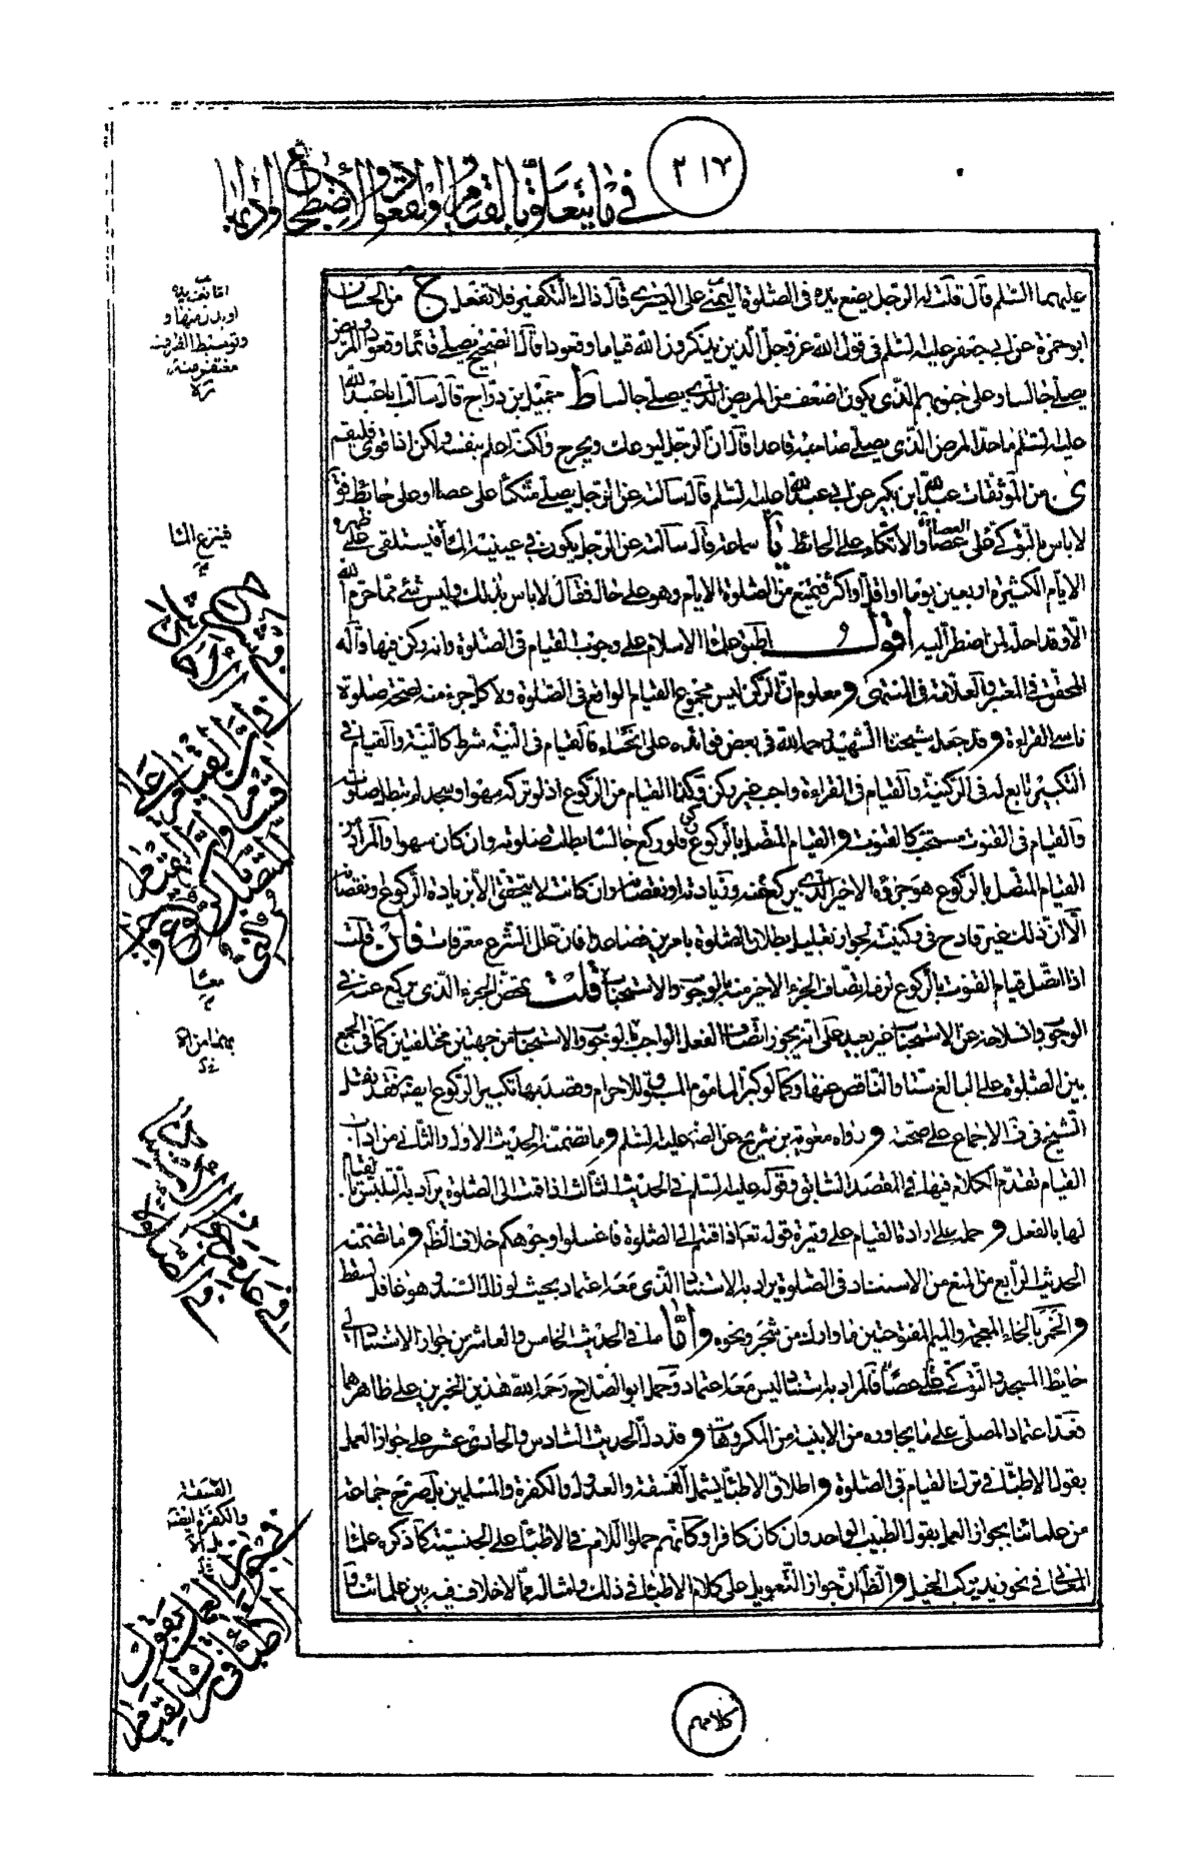 ٢١٧
في ما يتعلق بالقيام والقعود والاضطجاع والاستناد
عليهما السلام قال قلت له الرجل يضع يده في الصلوة اليمنى على اليسرى قال ذلك التكفير فلا تفعل ج من الحسان
ابو حمزة عن ابي جعفر عليه السلم في قول الله عز وجل الذين يذكرون الله قياما وقعودا قال الصحيح يصلي قائما وقعودا المريض
يصلي جالسا وعلى جنوبهم الذي يكون اضعف من المريض الذي يصلي جالسا ط جميل بن دراج قال سألت ابا عبد الله
عليه السلم ما حد المرض الذي يصلي صاحبه قاعدا قال ان الرجل ليوعك ويحرج ولكنه اعلم بنفسه ولكن اذا قوي فليقم
ى من الموثقات عبد الله ابن بكير عن ابي عبد الله عليه السلم قال سألته عن الرجل يصلي متكئا على عصا او على حائط فق
لا باس بالتوكي على عصا والاتكاء على الحائط يا سماعة قال سألته عن الرجل يكون في عينيه الماء فيستلقي على ظهره
الايام الكثيرة اربعين يوما او اقل او اكثر فيمتنع من الصلوة الايام وهو على حاله فقال لا باس بذلك وليس شئ مما حرم الله
الا وقد احله لمن اضطر اليه اقول اطبق علماء الاسلام على وجوب القيام في الصلوة وانه ركن فيها قاله
المحقق في المعتبر والعلامة في المنتهى و معلوم ان الركن ليس مجموع القيام الواقع في الصلوة ولا كل جزء منه لصحة صلوة
ناسي القراءة و قد جعل شيخنا الشهيد رحمه الله في بعض فوائده على انحاء فالقيام في النية شرط كالنية والقيام في
التكبير تابع له في الركنية والقيام في القراءة واجب غير ركن وكذا القيام من الركوع اذ لو تركه سهوا وسجد لم تبطل صلوته
والقيام في القنوت مستحب كالقنوت و القيام المتصل بالركوع ركن فلو ركع جالسا بطلت صلوته وان كان سهوا والمراد من
القيام المتصل بالركوع هو جزؤه الاخير الذي يركع عنه وزيادته ونقصانه وان كانت لا يتحقق الا بزيادة الركوع ونقصانه
الا ان ذلك غير قادح في ركنيته لجواز تعليل بطلان الصلوة بامرين فصاعدا فان علل الشرع معرفات فان قلت
اذا اتصل قيام القنوت بالركوع لزم اتصاف الجزء الاخير منه بالوجوب والاستحباب قلت تمحض الجزء الذي يركع عنه في
الوجوب وانسلاخه عن الاستحباب غير بعيد على انه يجوز اتصاف الفعل الواحد بالوجوب والاستحباب من جهتين مختلفتين كما في الجمع
بين الصلوة على البالغ ستا والناقص عنها وكما لو كبر الماموم المسبوق للاحرام وقصد بها تكبير الركوع ايضا فقد نقل
الشيخ في ف الاجماع على صحته و رواه معوية بن شريح عن الصادق عليه السلم و ما تضمنه الحديث الاول والثاني من اداب
القيام تقدم الكلام فيها في المقصد السابق وقوله عليه السلم في الحديث الثالث اذا قمت الى الصلوة يراد به التلبس بالقيام
لها بالفعل و حمله على ارادة القيام على وتيرة قوله تعالى اذا قمتم الى الصلوة فاغسلوا وجوهكم خلاف الظ و ما تضمنه
الحديث الرابع من المنع من الاستناد في الصلوة يراد به الاستناد الذي معه اعتماد بحيث لو زال السناد وهو غافل لسقط
و الخمر بالخاء المعجمة والميم المفتوحتين ما واراك من شجر ونحوه و اما ما في الحديث الخامس والعاشر من جواز الاستناد الى
حايط المسجد والتوكي على عصا فالمراد به استناد ليس معه اعتماد وحمل ابو الصلاح رحمه الله هذين الخبرين على ظاهرهما
فعد اعتماد المصلي على ما يجاوره من الابنية من المكروهات و قد دل الحديث السادس والحادي عشر على جواز العمل
بقول الاطباء في ترك القيام في الصلوة و اطلاق الاطباء يشمل الفسقة والعدول والكفرة والمسلمين بل صرح جماعة
من علمائنا بجواز العمل بقول الطبيب الواحد وان كان كافرا وكانهم حملوا اللام في الاطباء على الجنسية كما ذكره علماء
المعاني في نحو زيد يركب الخيل و الظ ان جواز التعويل على كلام الاطباء في ذلك وامثاله مما لا خلاف فيه بين علمائنا
فينزع الماء
في عدم جواز
في الصلوة
الفسقة
والكفرة
كلامهم